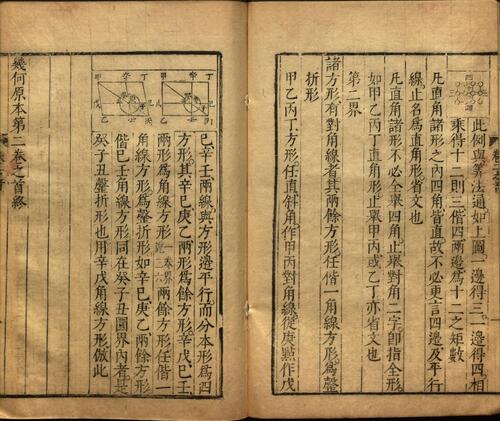 此例與算法通如上圖一邊得三一邊得四相
乘得十二則三偕四兩邊爲十二之矩數
凡直角諸形之內四角皆直故不必更言四邊及平行
線止名爲直角形省文也
凡直角諸形不必全舉四角止舉對角二字即指全形
如甲乙丙丁直角形止舉甲丙或乙丁亦省文也
第二界
諸方形有對角線者其兩餘方形任偕一角線方形爲罄
折形
甲乙丙丁方形任直斜角作甲丙對角線從庚點作戊
己辛壬兩線與方形邊平行而分本形爲四
方形其辛己庚乙兩形爲餘方形辛戊己壬
兩形爲角線方形一卷界說三六兩餘方形任偕一
角線方形爲罄折形如辛己庚乙兩餘方形
偕己壬角線方形同在癸子丑圜界內者是
癸子丑罄折形也用辛戊角線方形倣此
幾何原本第二卷之首終